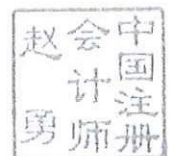 中国注册
会计师
赵勇